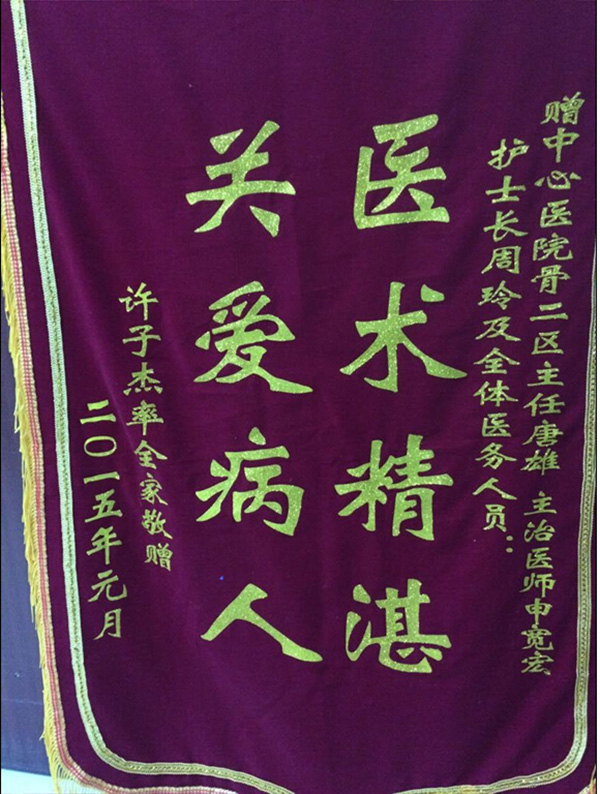 赠中心医院骨二区主任唐雄 主治医师申宽宏
护士长周玲及全体医务人员：
医术精湛
关爱病人
许子杰率全家敬赠
二〇一五年元月